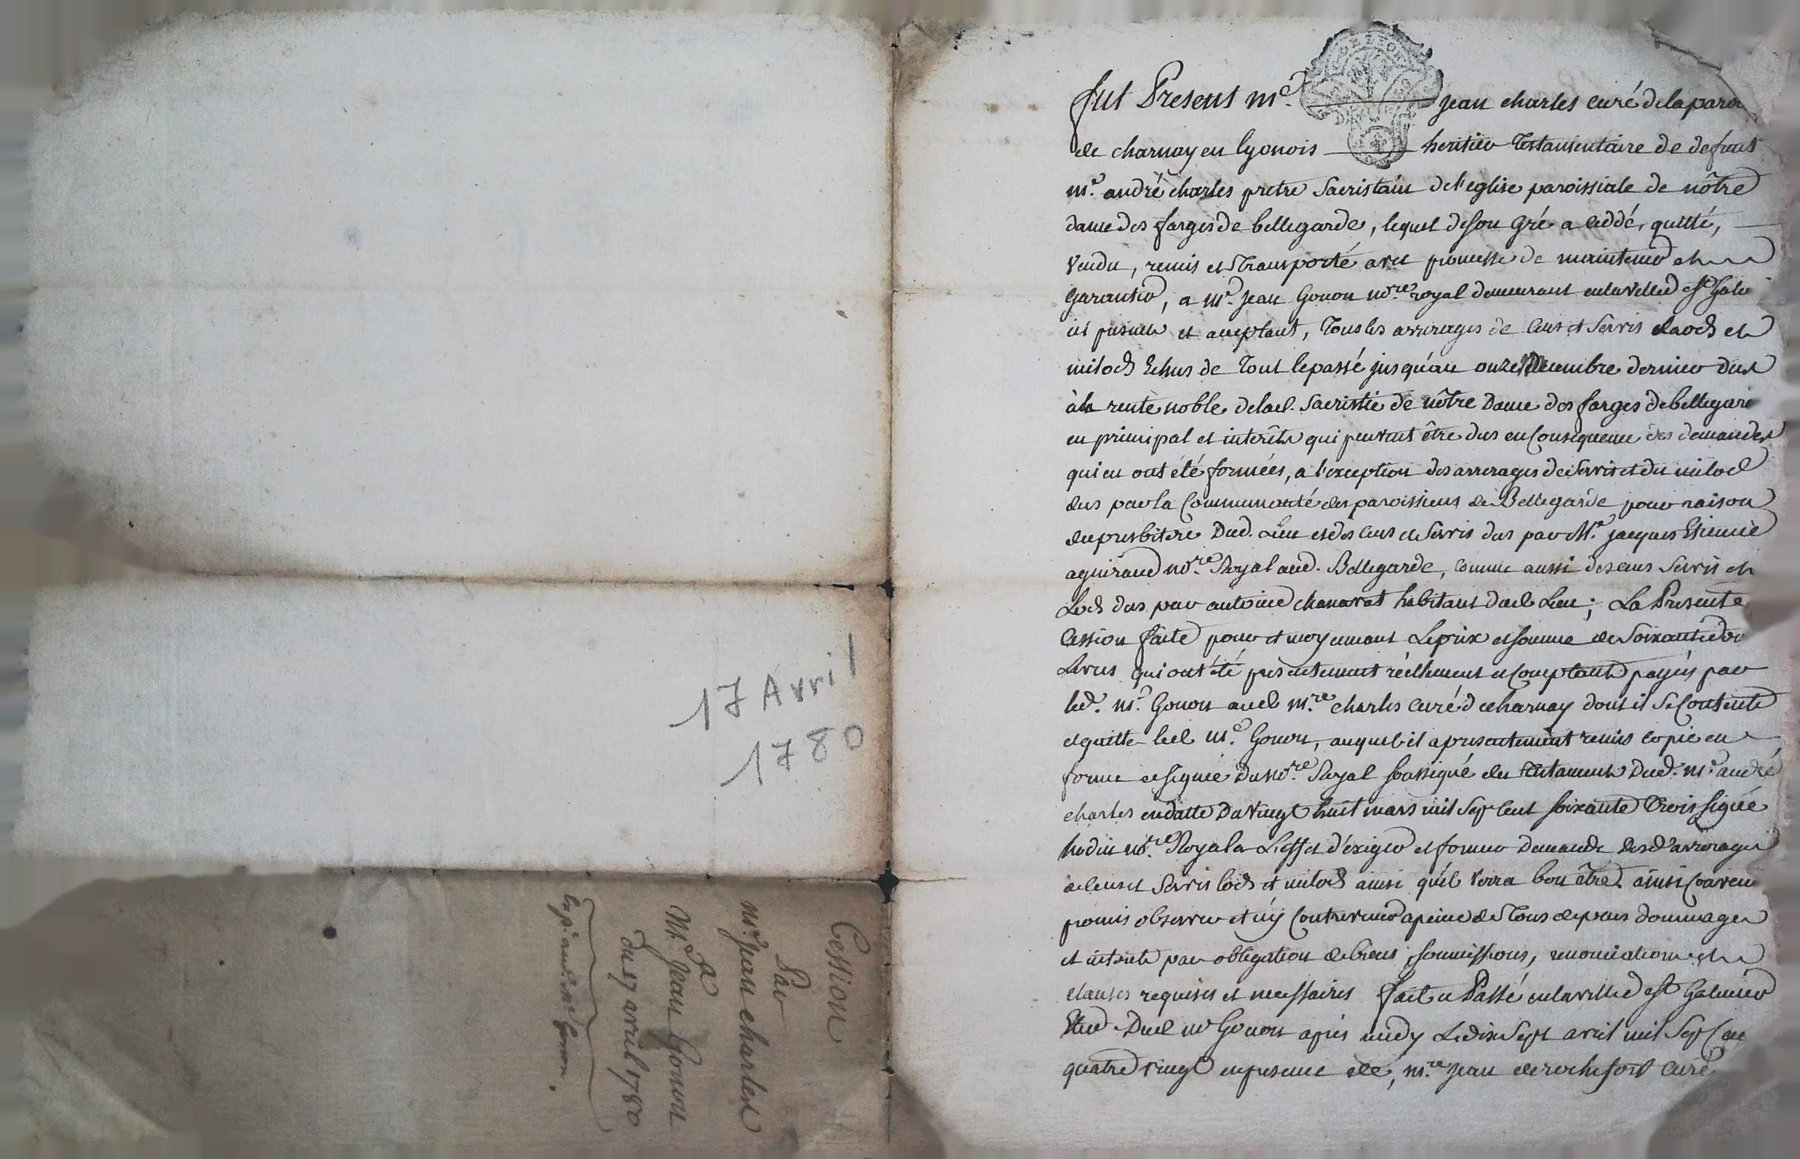 17 Avril
1780
Cession
Par
Mre. Jean charles
A
Me. Jean Gonon
Du 17 avril 1780
fut Present me. jean charles curé de la paroi
de charnay en lyonois heritier Testamentaire de defunt
me. andré charles pretre Sacristain de l'eglise paroissiale de nôtre
dame des farges de bellegarde, lequel de son Gré a céddé, quitté,
Vendu, remis et Transporté avec promesse de maintenir et
garantir, a me. jean Gonon nore. royal demeurant en la ville de st Galm
ici present et acceptant, Tous les arrerages de Cens et Servis Laods et
milods Echus de Tout le passé jusqu'au onze Decembre dernier dus
à la rente noble de lad. Sacristie de nôtre Dame des farges de bellegard
en principal et interêts qui peuvent être dus en Consequence des demandes
qui en ont été formées, a l'exception des arrerages de Servis et du milod
dus par la Communauté des paroissiens de Bellegarde pour raison
du presbitere Dud. Lieu et des Cens et Servis dus par Me. jacques Etienne
aguiraud nore. Royal aud. Bellegarde, comme aussi des cens Servis et
Lods dus par antoine chanavat habitant dud Lieu; La Presente
Cession faite pour et moyennant Le prix et somme de Soixante
Livres qui ont été presentement réellement et Comptant payés par
led. me. Gonon aud mre. charles curé de charnay dont il Se Contente
et quitte led me. Gonon, auquel il a presentement remis copie en
forme et signée du nore. Royal soussigné du testament Dud. me. andré
charles en datte Du Vingt huit mars mil Sept Cent soixante Trois signée
hodin nore. Royal a L'effet d'exiger et former Demande desd arrerages
de Cens et Servis lods et milods ainsi qu'il Verra bon être. ainsi Conven
promis observer et n'y Contrevenir a peine de Tous depens dommages
et interets par obligation de biens, soumissions, renonciations et
clauses requises et necessaires fait et Passé en la ville de st Galmier
Etude Dud me Gonon après midy Le dix Sept avril mil Sept Cen
quatre vingt en presence de, mre. jean de rochefort Curé